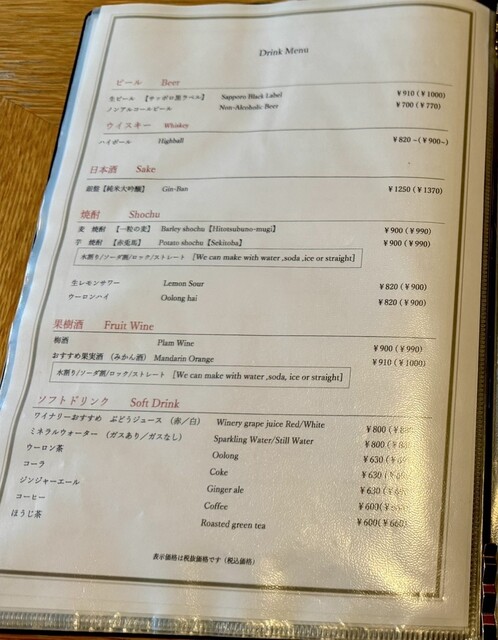 Drink Menu
ビール Beer
生ビール 【サッポロ黒ラベル】 Sapporo Black Label ￥910 (￥1000)
ノンアルコールビール Non-Alcoholic Beer ￥700 (￥770)
ウイスキー Whiskey
ハイボール Highball ￥820 ~(￥900~)
日本酒 Sake
銀盤【純米大吟醸】 Gin-Ban ￥1250 (￥1370)
焼酎 Shochu
麦 焼酎 【一粒の麦】 Barley shochu【Hitotsubuno-mugi】 ￥900 (￥990)
芋 焼酎 【赤兎馬】 Potato shochu【Sekitoba】 ￥900 (￥990)
水割り/ソーダ割/ロック/ストレート [We can make with water ,soda ,ice or straight]
生レモンサワー Lemon Sour ￥820 (￥900)
ウーロンハイ Oolong hai ￥820 (￥900)
果樹酒 Fruit Wine
梅酒 Plam Wine ￥900 (￥990)
おすすめ果実酒 （みかん酒） Mandarin Orange ￥910 (￥1000)
水割り/ソーダ割/ロック/ストレート [We can make with water ,soda, ice or straight]
ソフトドリンク Soft Drink
ワイナリーおすすめ ぶどうジュース （赤／白） Winery grape juice Red/White ￥800
ミネラルウォーター （ガスあり／ガスなし） Sparkling Water/Still Water ￥800
ウーロン茶 Oolong ￥630
コーラ Coke ￥630
ジンジャーエール Ginger ale ￥630
コーヒー Coffee ￥600
ほうじ茶 Roasted green tea ￥600(￥660)
表示価格は税抜価格です（税込価格）